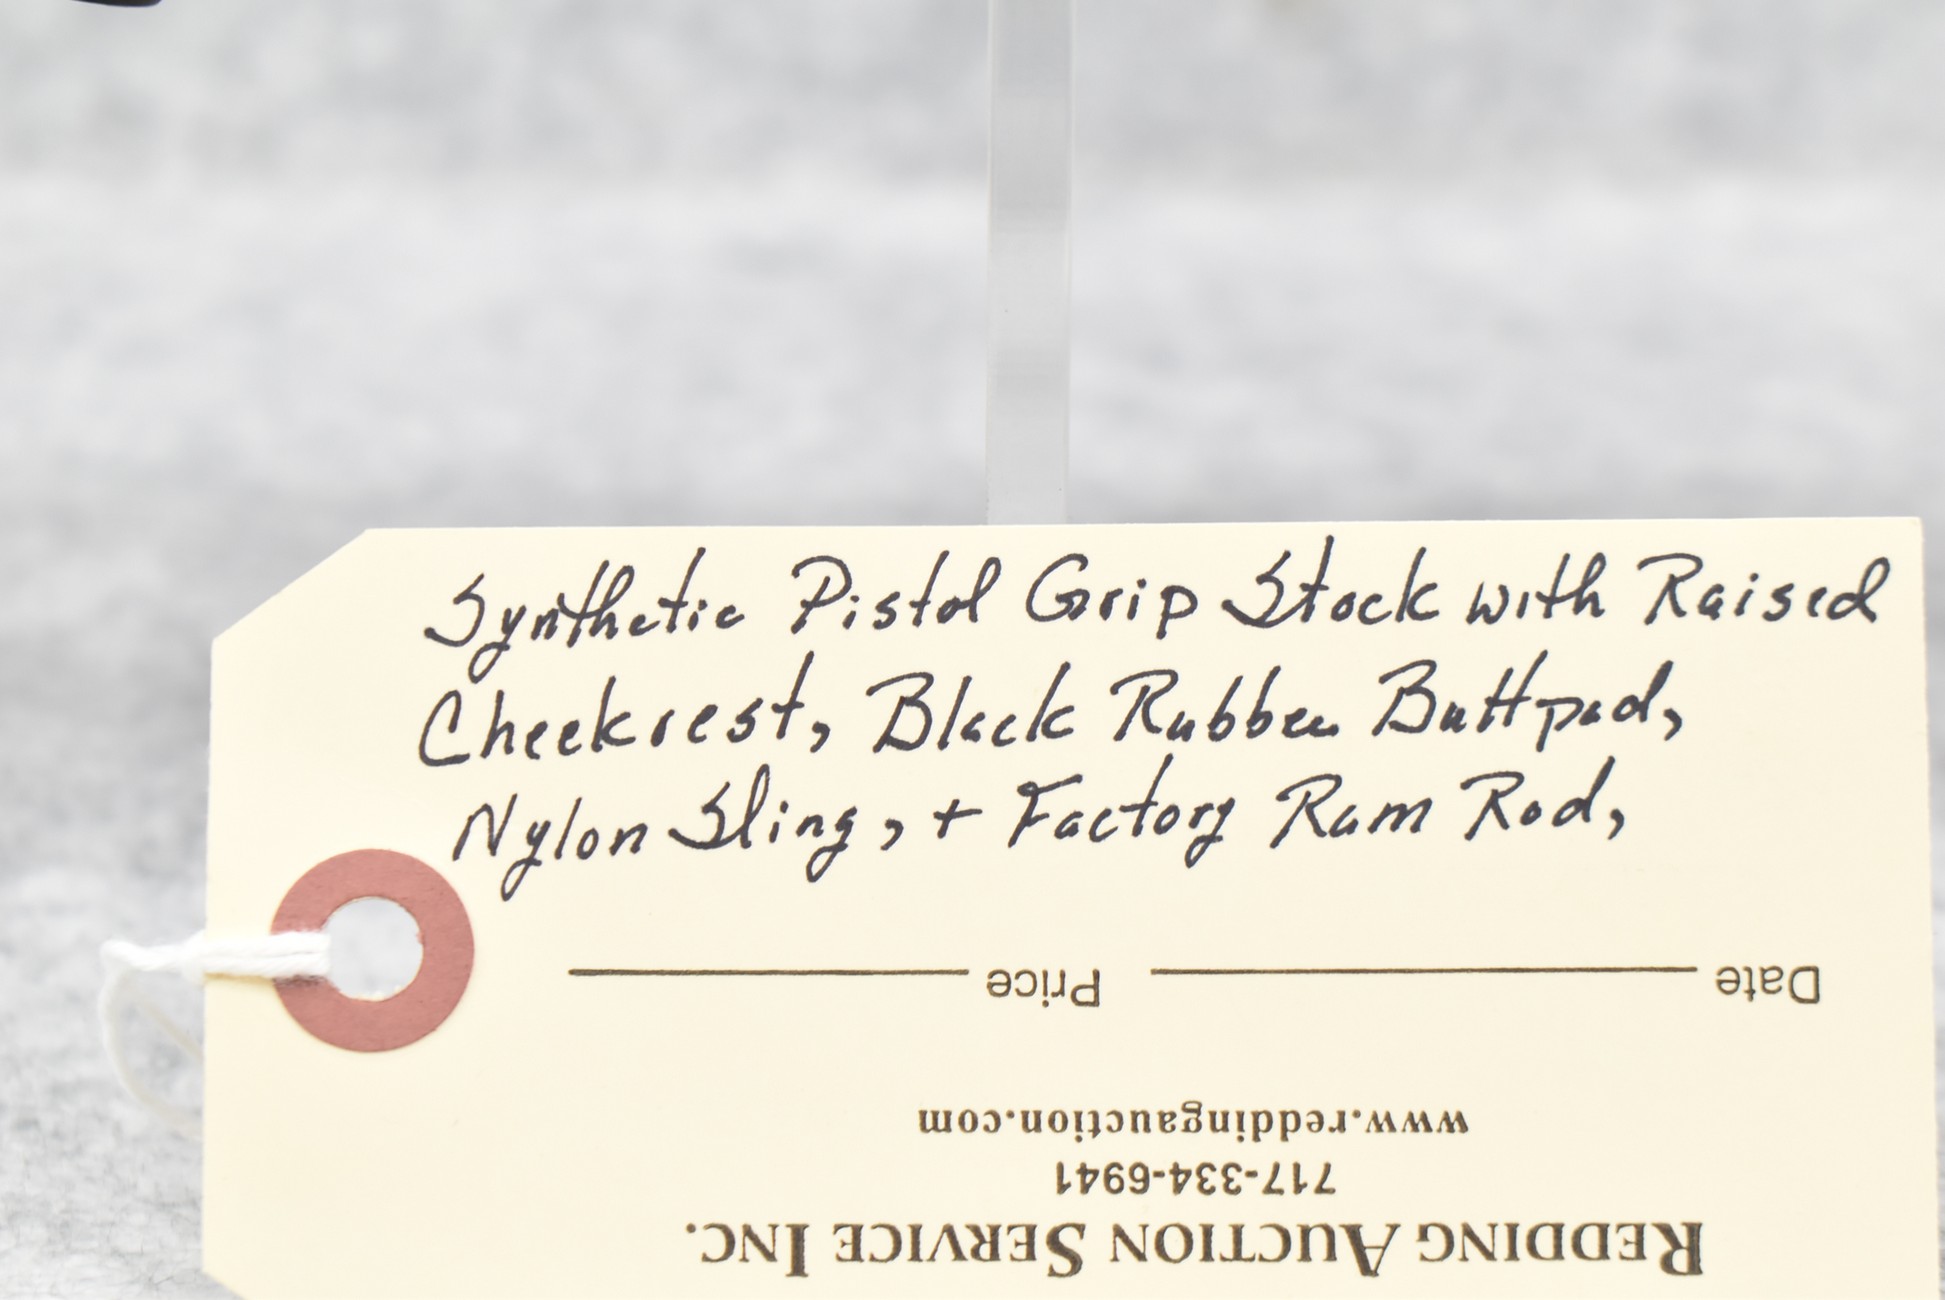 Synthetic Pistol Grip Stock with Raised
Cheekrest, Black Rubber Buttpad,
Nylon Sling, + Factory Ram Rod,
REDDING AUCTION SERVICE INC.
717-334-6941
www.reddingauction.com
Date Price